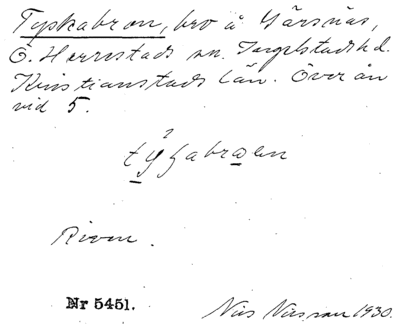 Tyskabron, bro å Gärsnäs,
Ö. Herrestads sn. Ingelstads hd.
Kristianstads län. Över ån
vid 5.
Riven.
Nr 5451. Nils Nilsson 1930.